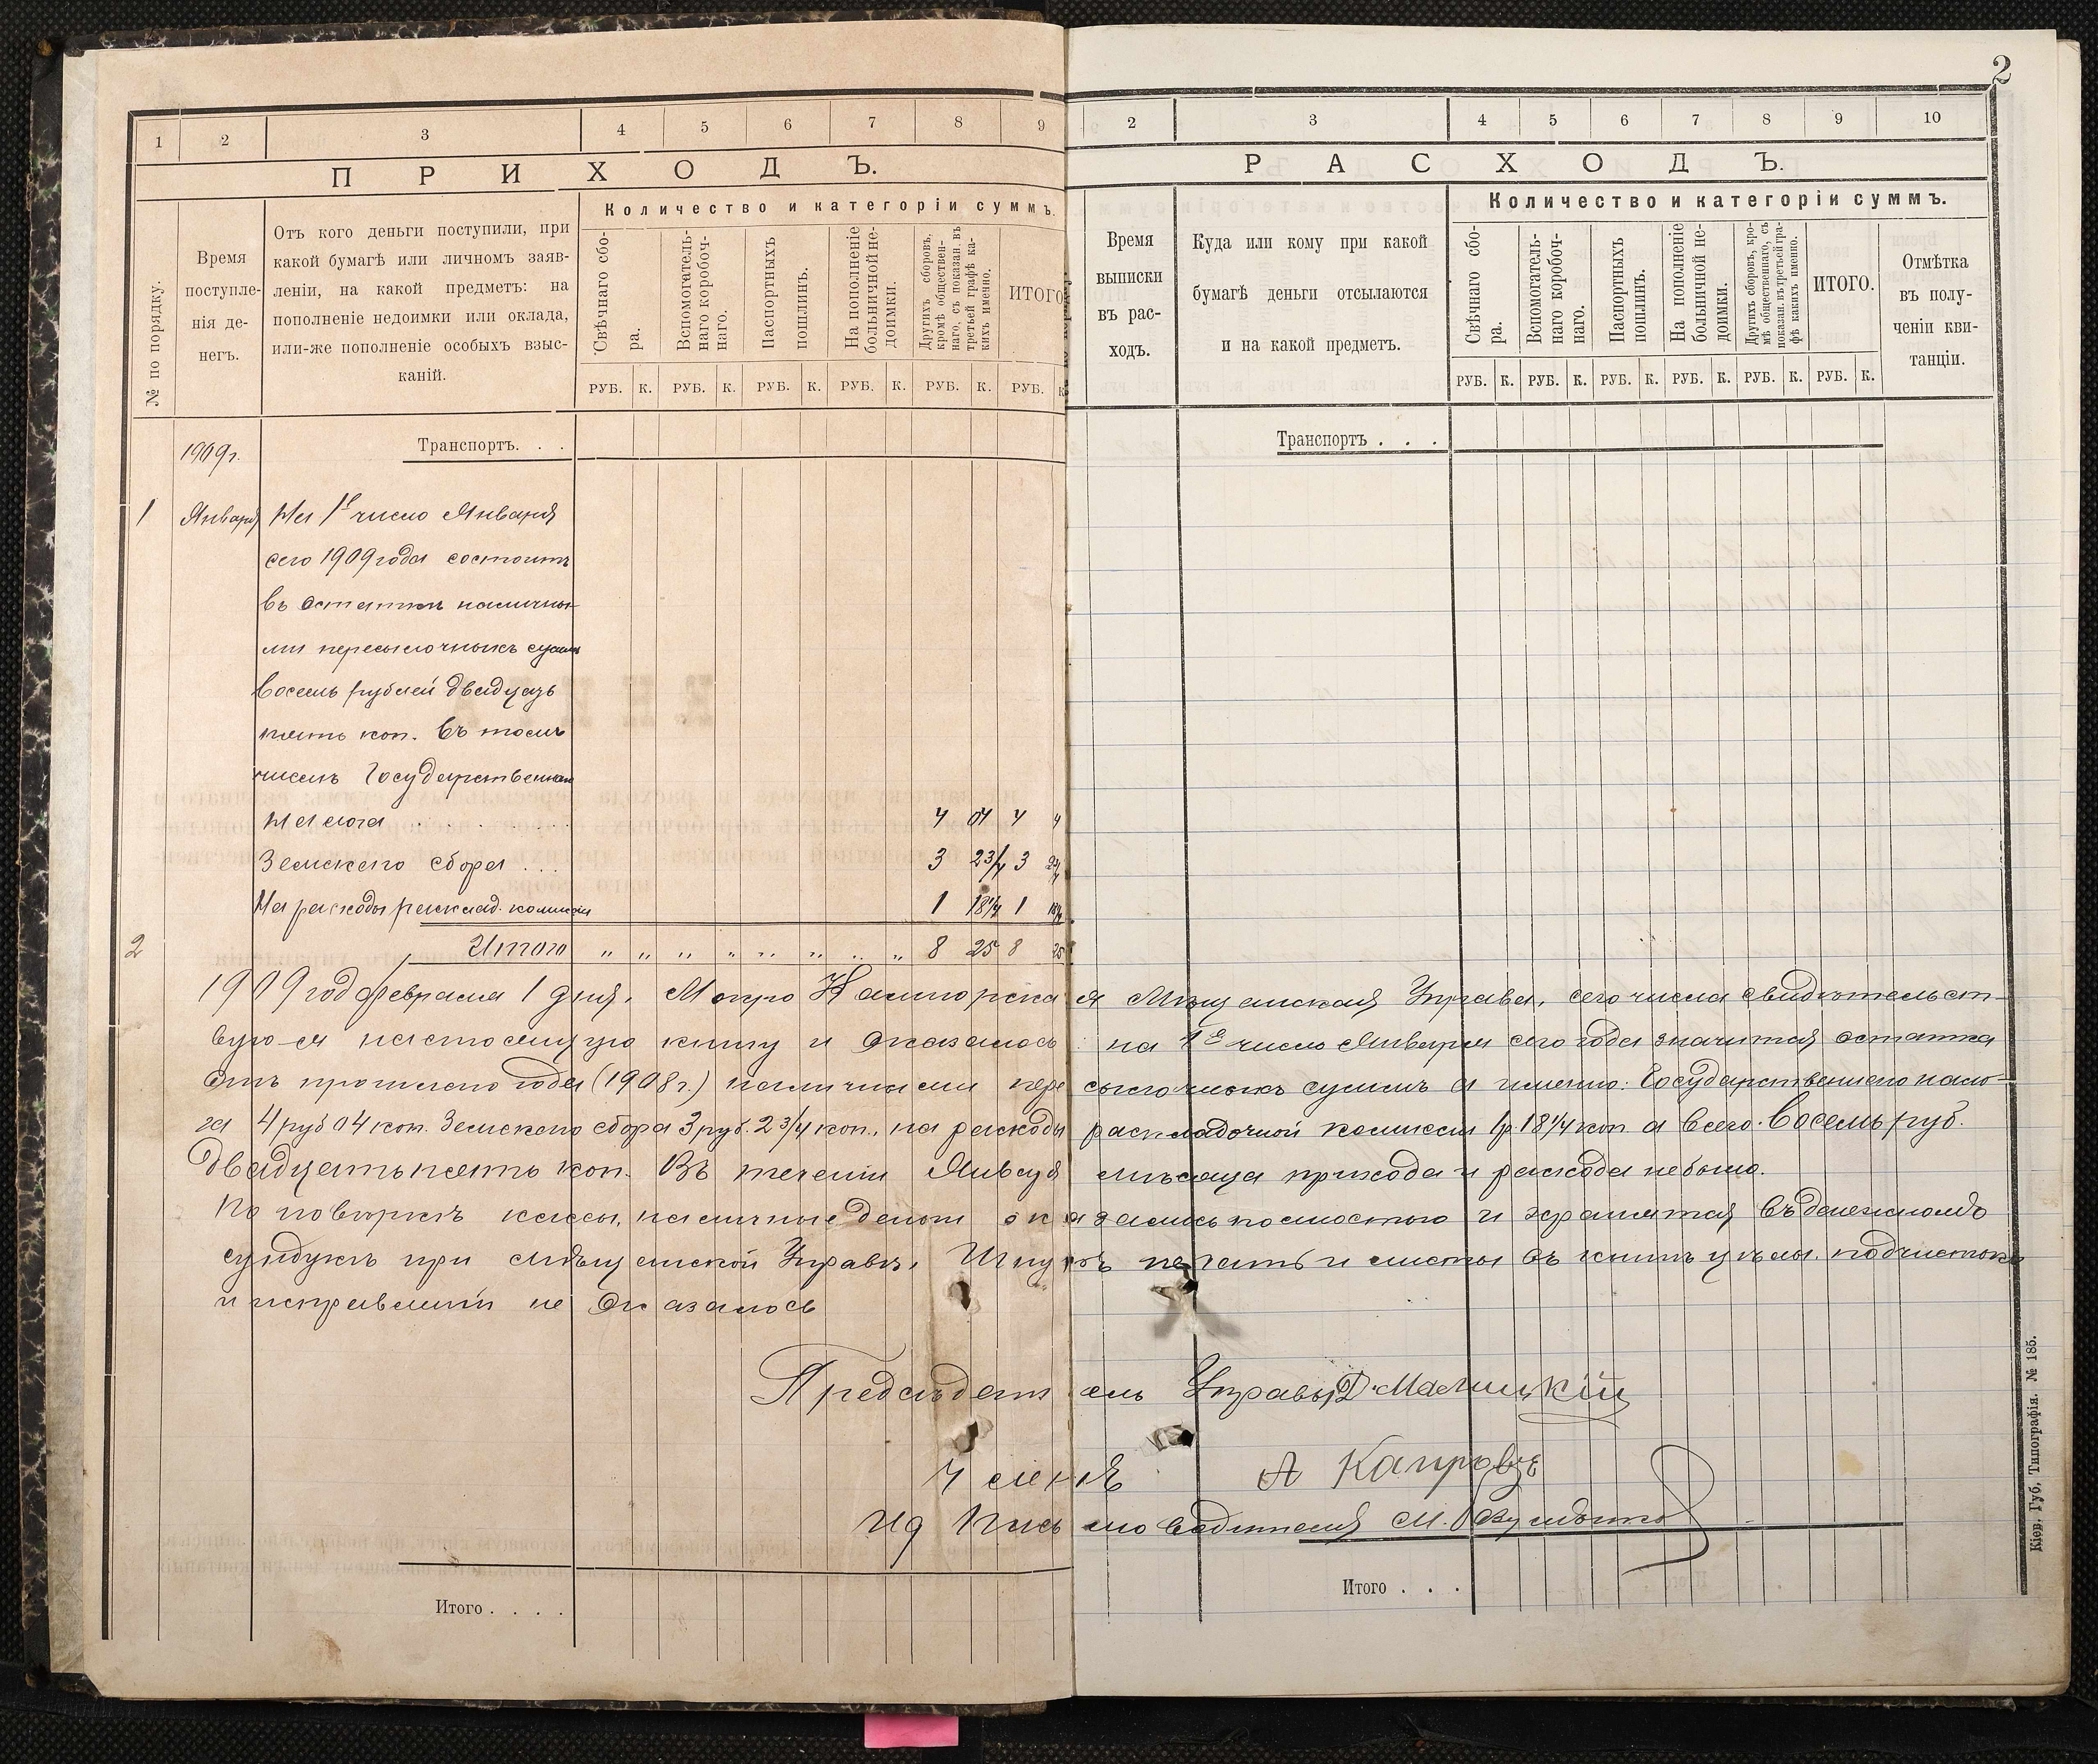 2
1 2 3 4 5 6 7 8 9
ПРИХОДЪ.
№ по порядку.
Время
поступле-
нія де-
негъ.
Отъ кого деньги поступили, при
какой бумагѣ или личномъ заяв-
леніи, на какой предметъ: на
пополненіе недоимки или оклада,
или-же пополненіе особыхъ взыс-
каній.
Количество и категоріи суммъ.
Свѣчнаго сбо-
ра.
Вспомогатель-
наго коробоч-
наго.
Паспортныхъ
пошлинъ.
На пополненіе
больничной не-
доимки.
Другихъ сборовъ,
кромѣ обществен-
наго, съ показан. въ
третьей графѣ ка-
кихъ именно.
ИТОГО
РУБ. К. РУБ. К. РУБ. К. РУБ. К. РУБ. К. РУБ. К
1909 г.
Транспортъ. . .
1 Января На 1е число Января
сего 1909 года состоитъ
въ остаткѣ наличны-
ми пересылочныхъ суммъ
восемь рублей двадцать
пять коп. въ томъ
числѣ Государственнаго
налога . . . . 4 04 4 4
Земскаго сбора . . . 3 2 3/4 3 2 3/4
На расходы расклад. комиссіи 1 18 1/4 1 18 1/4
2 Итого " " " " " " " " 8 25 8 25
2 3 4 5 6 7 8 9 10
РАСХОДЪ.
Время
выписки
въ рас-
ходъ.
Куда или кому при какой
бумагѣ деньги отсылаются
и на какой предметъ.
Количество и категоріи суммъ.
Свѣчнаго сбо-
ра.
Вспомогатель-
наго коробоч-
наго.
Паспортныхъ
пошлинъ.
На пополненіе
больничной не-
доимки.
Другихъ сборовъ, кро-
мѣ общественнаго, съ
показан. въ третьей гра-
фѣ какихъ именно.
ИТОГО.
Отмѣтка
въ полу-
ченіи кви-
танціи.
РУБ. К. РУБ. К. РУБ. К. РУБ. К. РУБ. К. РУБ. К.
Транспортъ . . .
1909 год февраля 1 дня, Мокро Калигорская Мѣщанская Управа, сего числа свидѣтельст-
вуя настоящую книгу и оказалось: на 1е число Января сего года значится остатка
отъ прошлаго года (1908 г.) наличными пересылочныхъ суммъ а именно: Государственнаго нало-
га 4 руб 04 коп. Земскаго сбора 3 руб. 2 3/4 коп., на расходы раскладочной комиссіи 1 р. 18 1/4 коп а всего восемь руб.
двадцать пять коп. Въ теченіи Января мѣсяца прихода и расхода не было.
По повѣркѣ кассы, наличные деньги оказались полностью и хранятся въ денежномъ
сундукѣ при мѣщанской Управѣ, Шнуръ печать и листы въ книгѣ цѣлы, подчистокъ
и исправленій не оказалось
Предсѣдатель Управы Д. Малицкій
Члень А Капровъ
Ид Письмоводителя М.
Итого . . . .
Итого . . .
Кіев. Губ. Типографія. № 185.